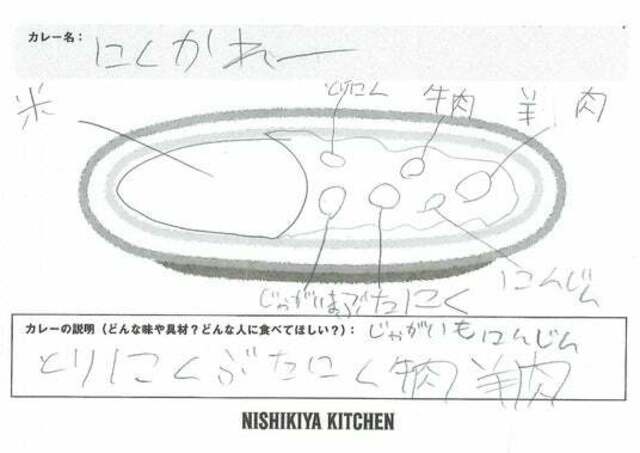 カレー名: にくかれー
米
とりにく
牛肉
羊肉
じゃがいも
ぶたにく
にんじん
カレーの説明(どんな味や具材?どんな人に食べてほしい?): じゃがいもにんじん
とりにくぶたにく牛肉羊肉
NISHIKIYA KITCHEN